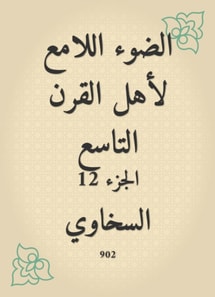 الضوء اللامع
لأهل القرن
التاسع
الجزء 12
السخاوي
902